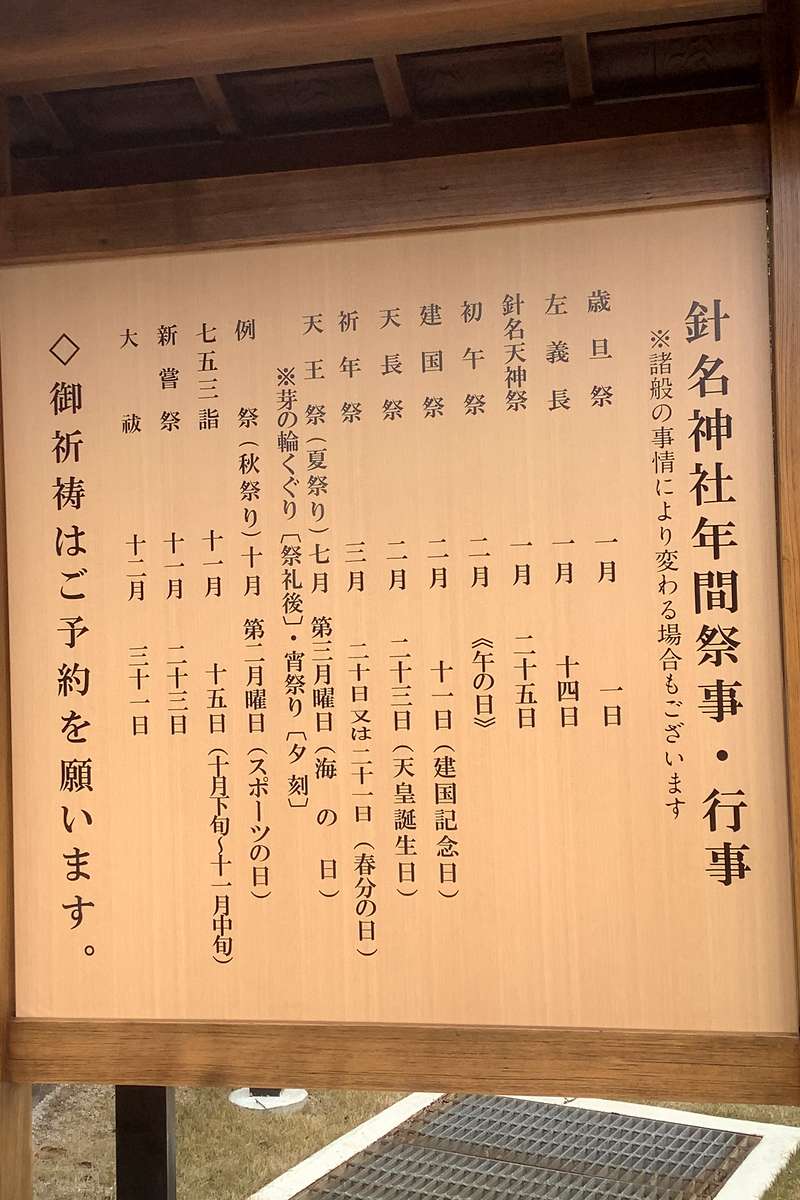 針名神社年間祭事・行事
※諸般の事情により変わる場合もございます
歳旦祭 一月 一日
左義長 一月 十四日
針名天神祭 一月 二十五日
初午祭 二月 《午の日》
建国祭 二月 十一日（建国記念日）
天長祭 二月 二十三日（天皇誕生日）
祈年祭 三月 二十日又は二十一日（春分の日）
天王祭（夏祭り）七月 第三月曜日（海の日）
※芽の輪くぐり〔祭礼後〕・宵祭り〔夕刻〕
例祭（秋祭り）十月 第二月曜日（スポーツの日）
七五三詣 十一月 十五日（十月下旬～十一月中旬）
新嘗祭 十一月 二十三日
大祓 十二月 三十一日
◇御祈祷はご予約を願います。